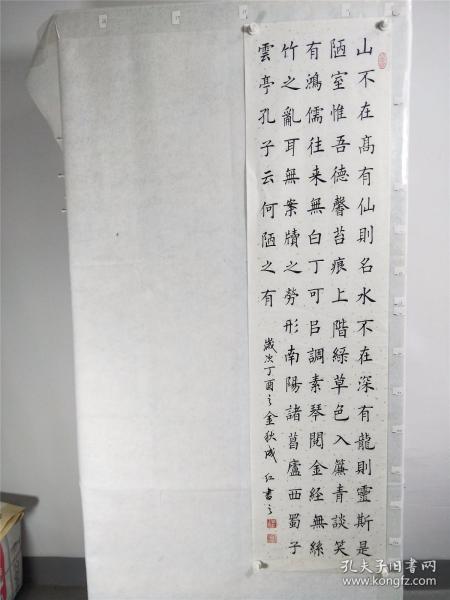 山不在髙有仙則名水不在深有龍則靈斯是
陋室惟吾德馨苔痕上階綠草色入簾青談笑
有鴻儒往来無白丁可㠯調素琴閱金経無絲
竹之亂耳無案牘之勞形南陽諸葛廬西蜀子
雲亭孔子云何陋之有
歲次丁酉之金秋成红書之
孔夫子旧书网
www.kongfz.com